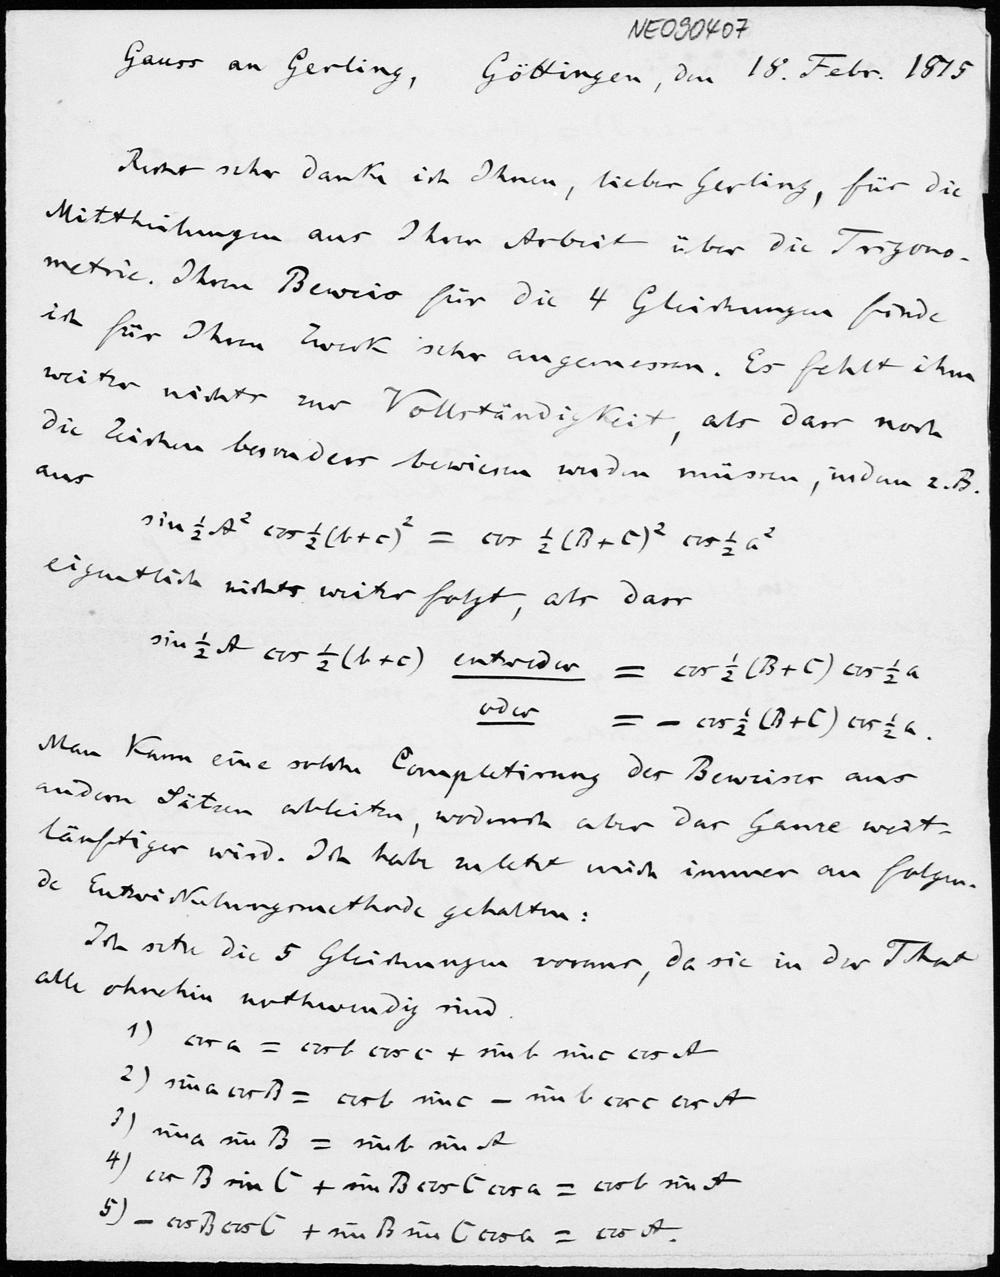 NE090407
Gauss an Gerling, Göttingen, den 18. Febr. 1815
Recht sehr danke ich Ihnen, lieber Gerling, für die
Mittheilungen aus Ihrer Arbeit über die Trigono-
metrie. Ihren Beweis für die 4 Gleichungen finde
ich für Ihren Zweck sehr angemessen. Es fehlt ihm
weiter nichts zur Vollständigkeit, als dass noch
die Zeichen besonders bewiesen werden müssen, indem z.B.
aus
sin ½ A² cos ½ (b+c)² = cos ½ (B+C)² cos ½ a²
eigentlich nichts weiter folgt, als dass
sin ½ A cos ½ (b+c) entweder = cos ½ (B+C) cos ½ a
oder = – cos ½ (B+C) cos ½ a.
Man kann eine solche Completirung des Beweises aus
andern Sätzen ableiten, wodurch aber das Ganze weit-
läuftiger wird. Ich habe zuletzt mich immer an folgen-
de Entwickelungsmethode gehalten:
Ich setze die 5 Gleichungen voraus, da sie in der That
alle ohnehin nothwendig sind.
1) cos a = cos b cos c + sin b sin c cos A
2) sin a cos B = cos b sin c – sin b cos c cos A
3) sin a sin B = sin b sin A
4) cos B sin C + sin B cos C cos a = cos b sin A
5) – cos B cos C + sin B sin C cos a = cos A.